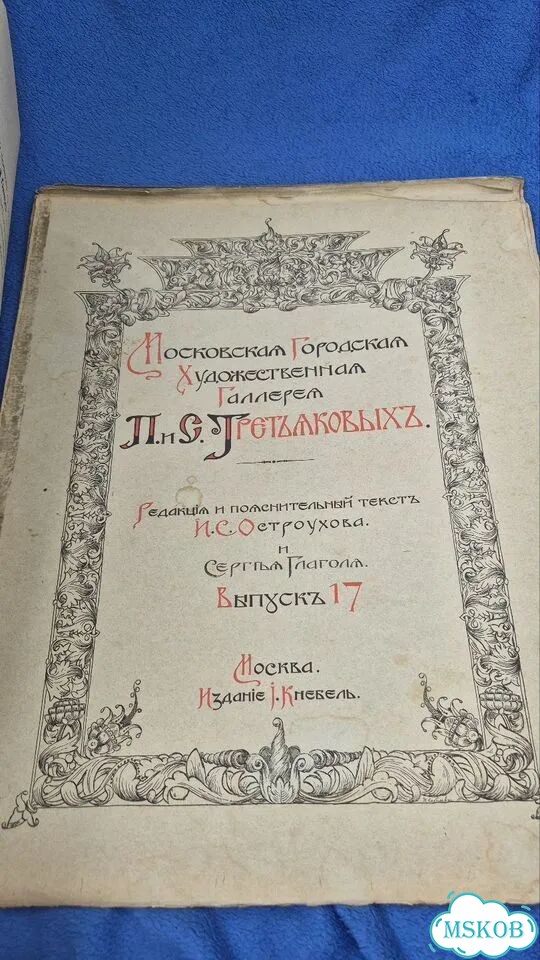 Московская Городская
Художественная
Галлерея
П. и С. Третьяковыхъ.
Редакція и пояснительный текстъ
И. С. Остроухова.
и
Сергѣя Глаголя.
Выпускъ 17
Москва.
Изданіе І. Кнебель.
MSKOB